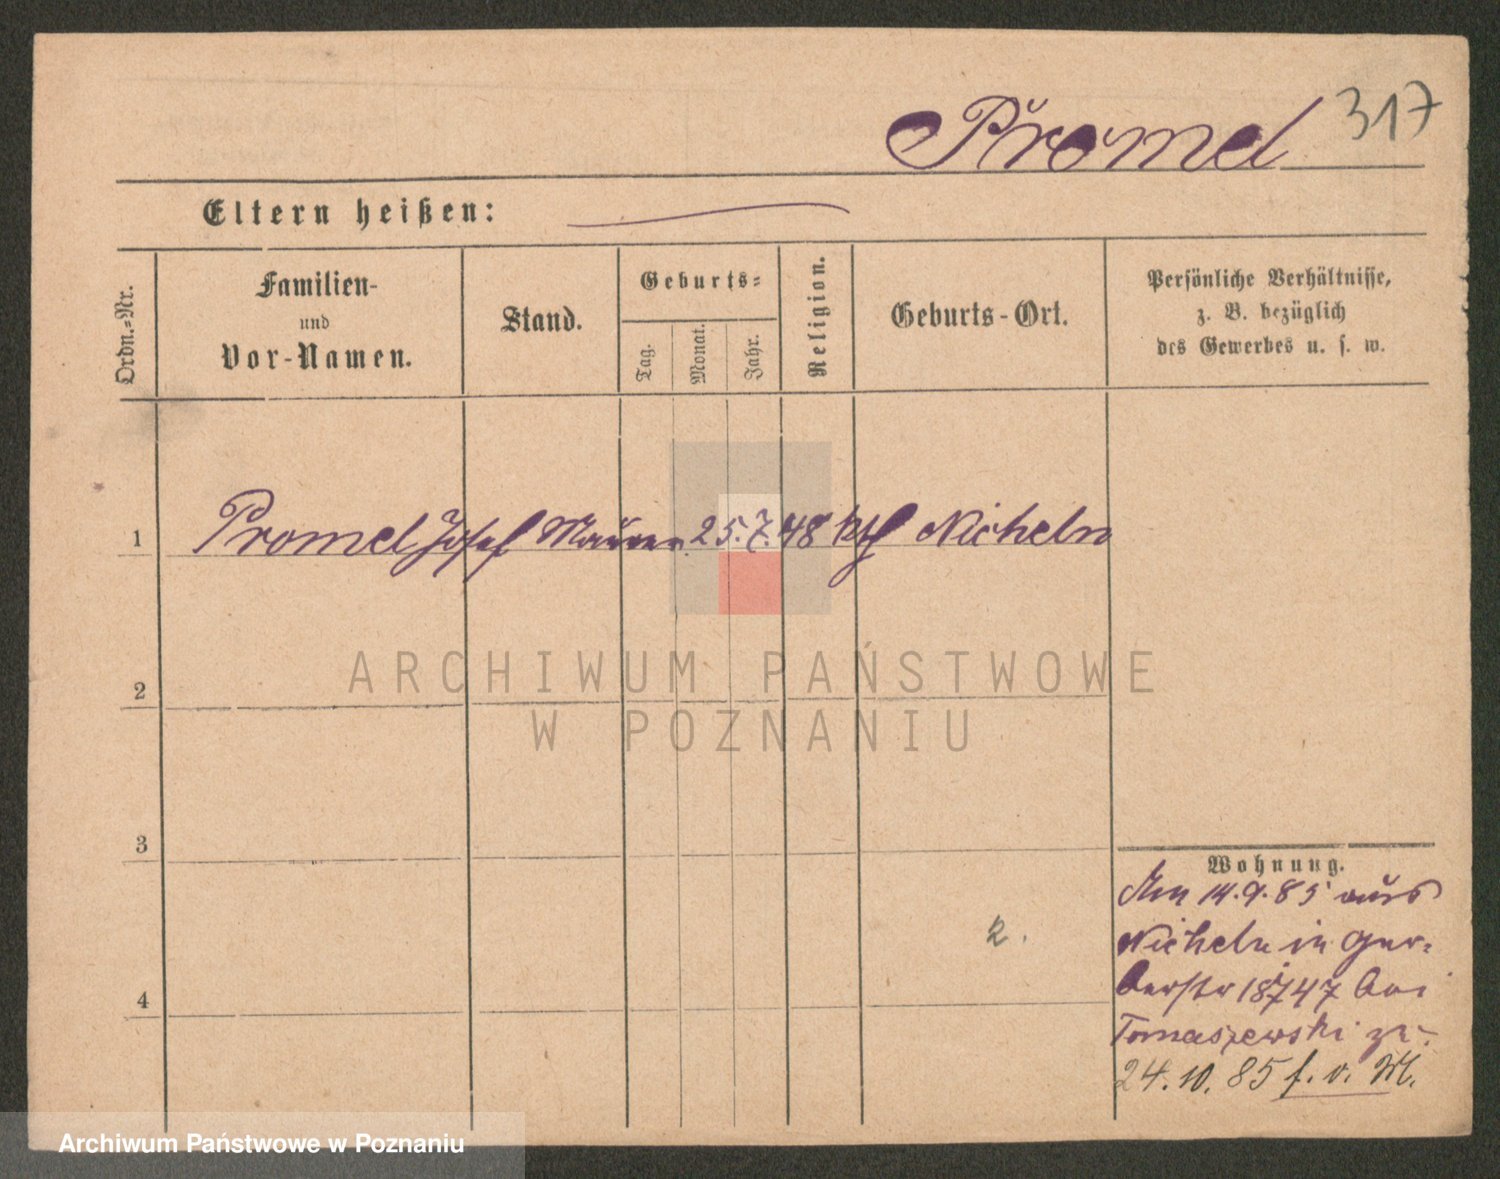 Promel 317
Eltern heißen:
Ordn.-Nr.
Familien-
und
Vor-Namen.
Stand.
Geburts-
Tag.
Monat.
Jahr.
Religion.
Geburts-Ort.
Persönliche Verhältnisse,
z. B. bezüglich
des Gewerbes u. s. w.
1 Promel Josef Maurer 25.7.48 kth Nicheln
2
3
4
Wohnung.
Am 14.9.85 aus
Nicheln in Ger-
berstr 18/47 bei
Tomaszewski zu.
24.10.85 f. v. M.
2.
ARCHIWUM PAŃSTWOWE
W POZNANIU
Archiwum Państwowe w Poznaniu